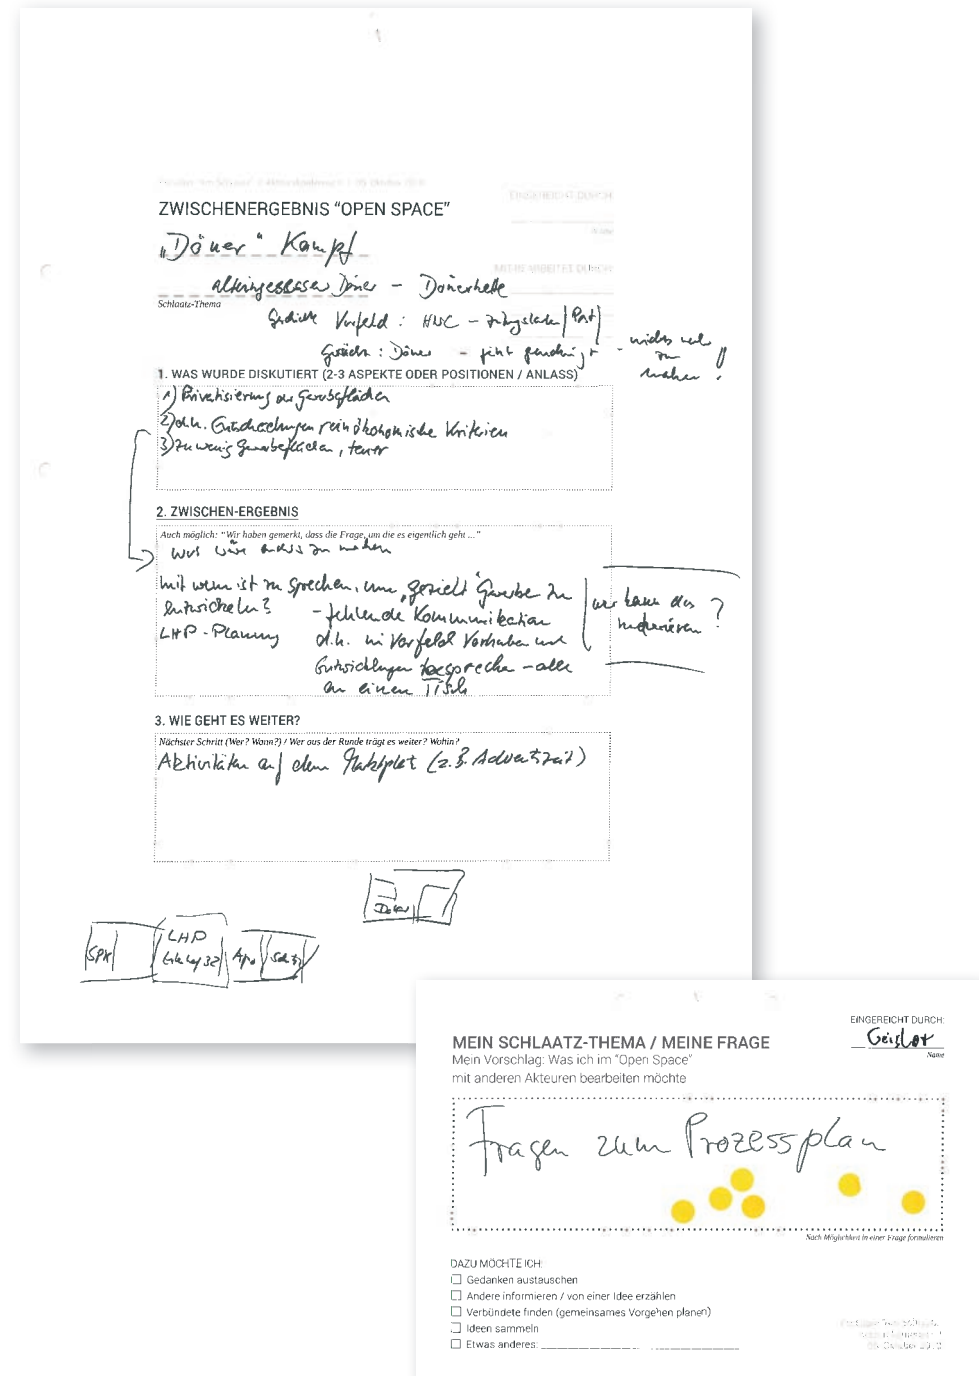 ZWISCHENERGEBNIS “OPEN SPACE”
EINGEREICHT DURCH:
Name
„Döner“ Kampf
MITBEARBEITET DURCH:
alteingesessener Döner – Dönerkette
Schlaatz-Thema
Vorfeld: HWC – Post
: Döner –
nichts mehr
zu
machen!
1. WAS WURDE DISKUTIERT (2-3 ASPEKTE ODER POSITIONEN / ANLASS)
1) Privatisierung der Gewerbeflächen
2) d.h. Entscheidungen rein ökonomische Kriterien
3) zu wenig Gewerbeflächen, teuer
2. ZWISCHEN-ERGEBNIS
Auch möglich: “Wir haben gemerkt, dass die Frage, um die es eigentlich geht ...”
was wäre anders zu machen
mit wem ist zu sprechen, um „gezielt“ Gewerbe zu
entwickeln?
LHP-Planung
- fehlende Kommunikation
d.h. im Vorfeld Vorhaben und
Entwicklungen besprechen – alle
an einen Tisch
wer kann das
moderieren?
3. WIE GEHT ES WEITER?
Nächster Schritt (Wer? Wann?) / Wer aus der Runde trägt es weiter? Wohin?
Aktivitäten auf dem Marktplatz (z.B. Adventszeit)
Döner
SPK
LHP
Apo
MEIN SCHLAATZ-THEMA / MEINE FRAGE
Mein Vorschlag: Was ich im “Open Space”
mit anderen Akteuren bearbeiten möchte
EINGEREICHT DURCH:
Geisler
Name
Fragen zum Prozessplan
Nach Möglichkeit in einer Frage formulieren
DAZU MÖCHTE ICH:
Gedanken austauschen
Andere informieren / von einer Idee erzählen
Verbündete finden (gemeinsames Vorgehen planen)
Ideen sammeln
Etwas anderes: